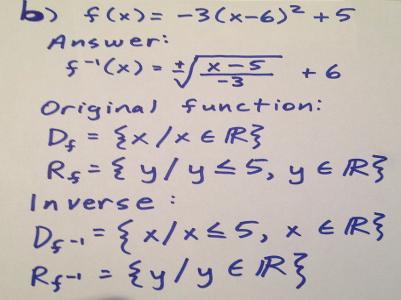 b) f(x) = -3(x-6)² + 5
Answer:
f⁻¹(x) = ±√((x-5)/(-3)) + 6
Original function:
D_f = {x/x ∈ ℝ}
R_f = {y/y ≤ 5, y ∈ ℝ}
Inverse:
D_f⁻¹ = {x/x ≤ 5, x ∈ ℝ}
R_f⁻¹ = {y/y ∈ ℝ}